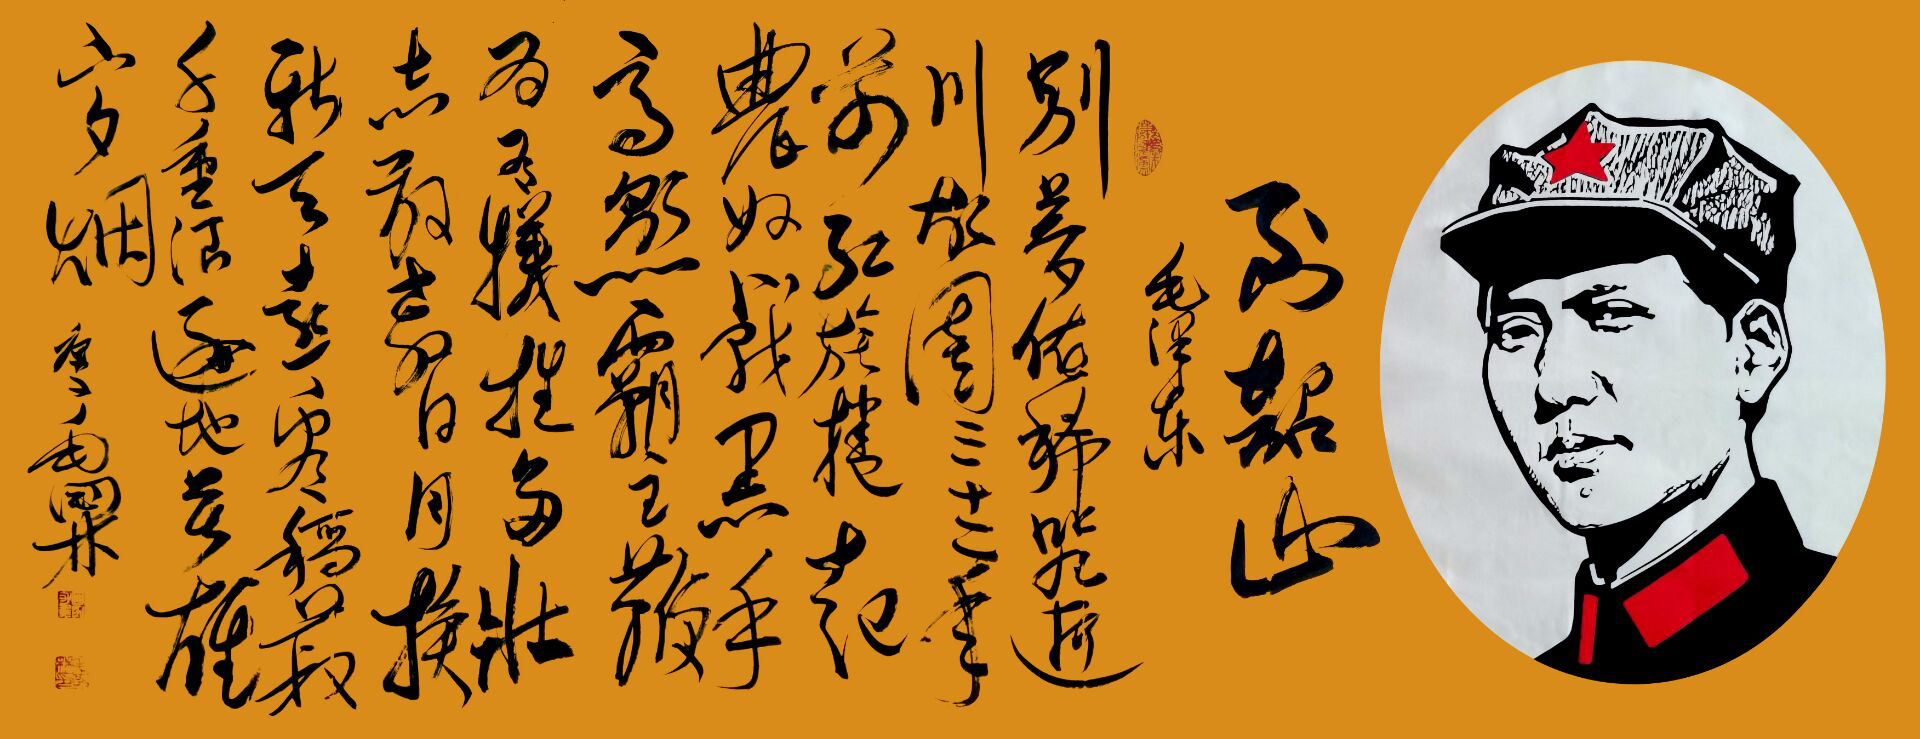 到韶山
毛泽东
别梦依稀咒逝
川故園三十二年
前红旗捲起
農奴戟黑手
高悬霸主鞭
为有犧牲多壯
志敢教日月换
新天喜看稻菽
千重浪遍地英雄
下夕烟